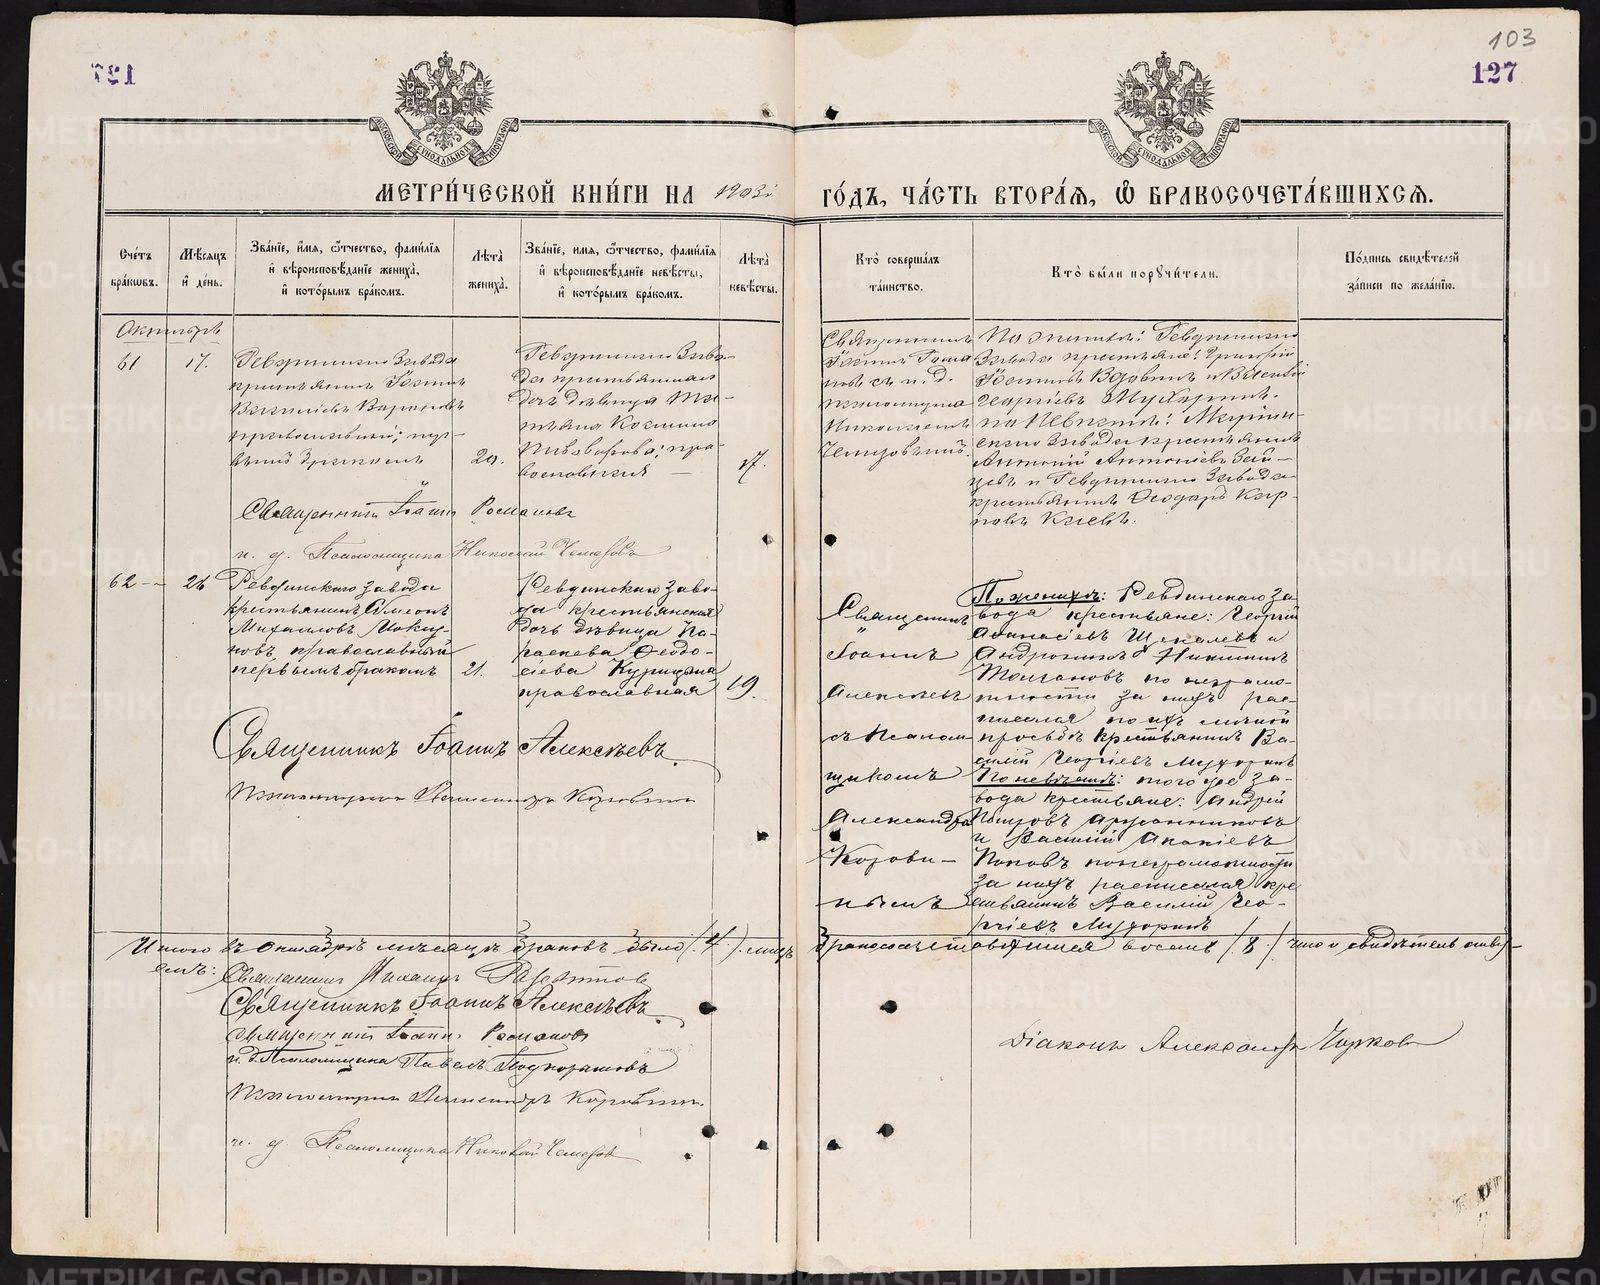 103
127
МЕТРИ́ЧЕСКОЙ КНИ́ГИ НА 1903й ГО́ДЪ, ЧА́СТЬ ВТОРА́Я, Ѽ БРАКОСОЧЕТА́ВШИХСЯ.
Сче́тъ бра́кѡвъ.
Мѣ́сяцъ и҆ де́нь.
Зва́нїе, и҆́мя, ѻ҆́тчество, фами́лїя и҆ вѣроисповѣ́данїе жениха̀, и҆ кото́рымъ бра́комъ.
Лѣ́та̀ жениха̀.
Зва́нїе, и҆́мя, ѻ҆́тчество, фами́лїя и҆ вѣроисповѣ́данїе невѣ́сты, и҆ кото́рымъ бра́комъ.
Лѣ́та̀ невѣ́сты.
Кто̀ соверша́лъ та́инство.
Кто̀ бы́ли порꙋчи́тели.
По́дпись свидѣ́телей за́писи по жела́нїю.
Октябрь
61
17.
Ревдинскаго Завода
крестьянинъ Іоаннъ
Василіевъ
православный; пер-
вымъ бракомъ
20.
Ревдинскаго Заво-
да крестьянская
дочь девица Та-
тіана Космина
Пивоварова; пра-
вославная
17.
Священникъ
Іоаннъ Рома
новъ съ и. д.
псаломщика
Николаемъ
По женихѣ: Ревдинскаго
Завода крестьяне: Григорій
Іоанновъ Вдовинъ и Василій
Георгіевъ Мухоринъ.
по Невѣстѣ: Мариин-
скаго Завода крестьянинъ
Антоній Антоніевъ Зай-
цевъ и Ревдинскаго Завода
крестьянинъ Ѳеодоръ Кар-
повъ
Священникъ Іоаннъ Романовъ
и. д. Псаломщика Николай
62
26
Ревдинскаго завода
крестьянинъ Симеонъ
Михаиловъ
новъ православный
первымъ бракомъ
21.
Ревдинскаго заво-
да крестьянская
дочь дѣвица Па-
раскева Ѳеодо-
сіева Курицына
православная
19.
Священникъ
Іоаннъ
Алексѣевъ
съ Псалом-
щикомъ
Александр
Корови-
нымъ
По женихѣ: Ревдинскаго за-
вода крестьяне: Георгій
Аѳанасіевъ Щекалевъ и
Андроникъ Никитинъ
Толмановъ по неграмо-
тности за нихъ рас-
писался по ихъ личной
просьбѣ крестьянинъ Ва-
силій Георгіевъ Мухоринъ
По невѣстѣ: того же за-
вода крестьяне: Андрей
Петровъ
и Василій
Поповъ по неграмотности
за нихъ расписался кре
стьянинъ Василій Гео-
ргіевъ Мухоринъ
Священникъ Іоаннъ Алексѣевъ
Псаломщикъ Александръ Коровинъ
Итого въ Октябрѣ мѣсяцѣ браковъ было (4) лицъ бракосочетавшихся восемь (8) въ чемъ и свидѣтельству-
емъ:
Священникъ Михаилъ
Священникъ Іоаннъ Алексѣевъ
Священникъ Іоаннъ Романовъ
и. д. Псаломщика Павелъ
Псаломщикъ Александръ Коровинъ.
и. д. Псаломщика Николай
Діаконъ Александръ Чирковъ